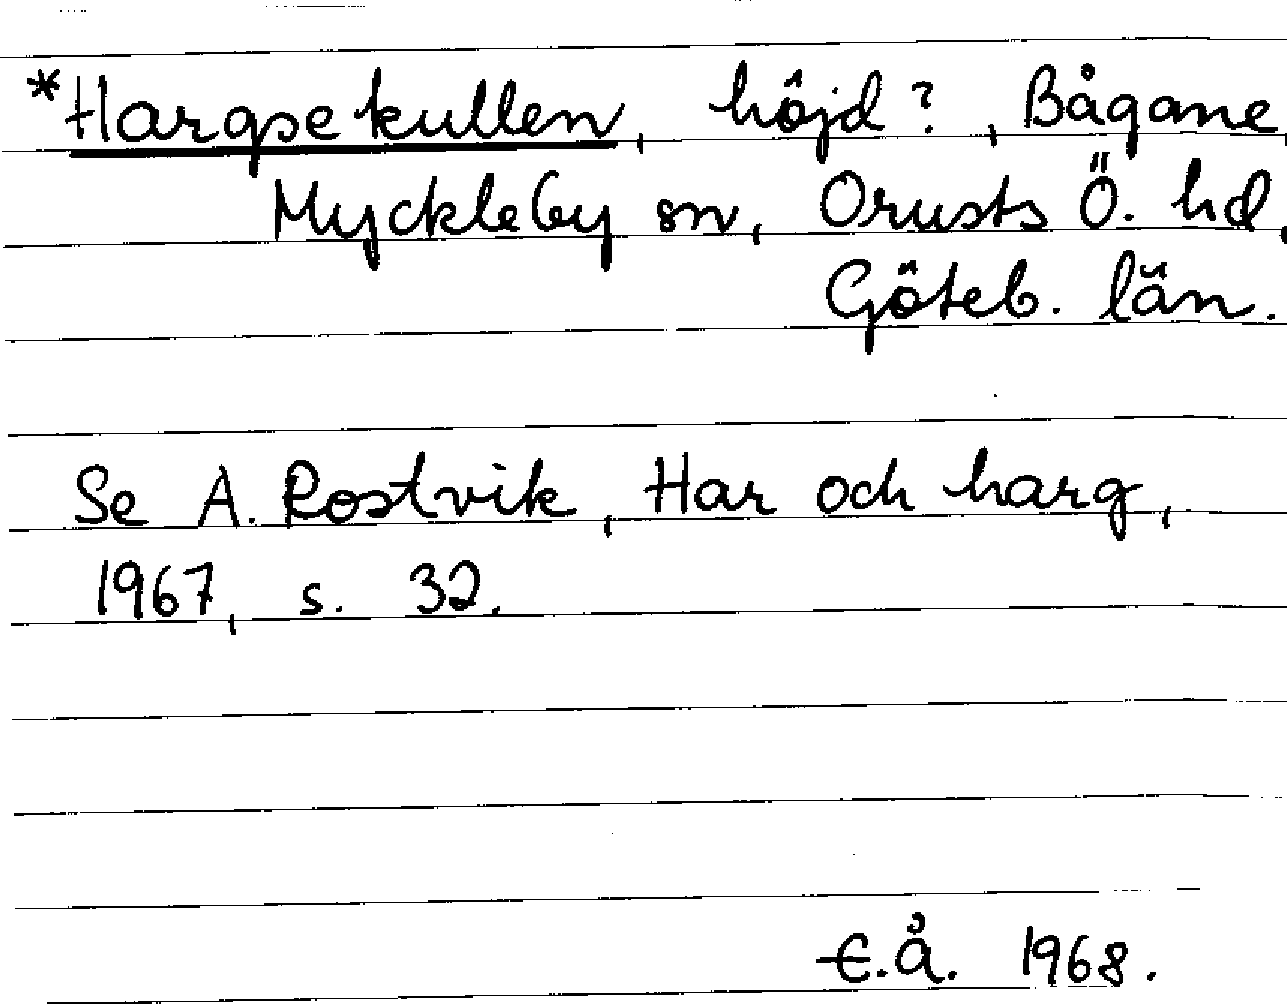 *Hargsekullen, höjd?, Bågane,
Myckleby sn, Orusts Ö. hd,
Göteb. län.
Se A. Rostvik, Har och harg,
1967, s. 32.
E.Å. 1968.